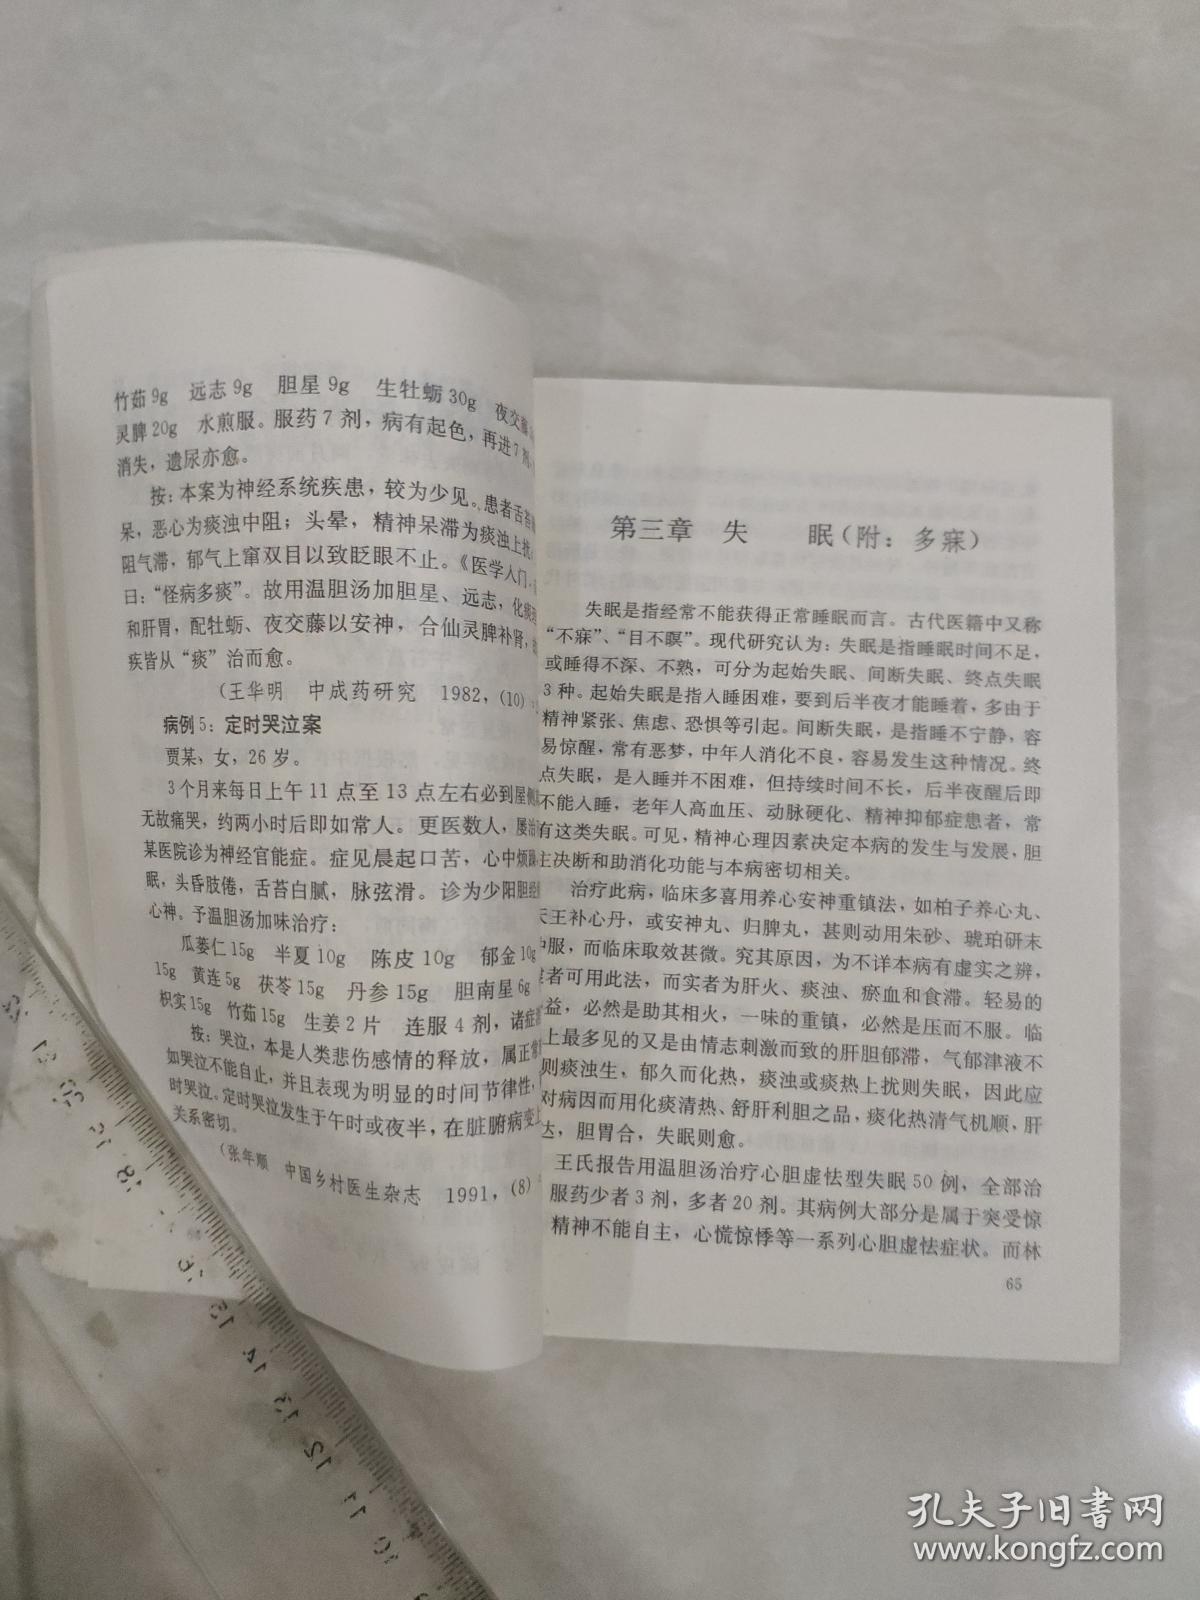 竹茹9g 远志9g 胆星9g 生牡蛎30g 夜交藤
灵脾20g 水煎服。服药7剂，病有起色，再进7剂，
消失，遗尿亦愈。
按：本案为神经系统疾患，较为少见。患者舌苔
呆，恶心为痰浊中阻；头晕，精神呆滞为痰浊上扰，
阻气滞，郁气上窜双目以致眨眼不止。《医学入门》
曰：“怪病多痰”。故用温胆汤加胆星、远志，化痰
和肝胃，配牡蛎、夜交藤以安神，合仙灵脾补肾，
疾皆从“痰”治而愈。
（王华明 中成药研究 1982，(10)
病例5：定时哭泣案
贾某，女，26岁。
3个月来每日上午11点至13点左右必到屋侧
无故痛哭，约两小时后即如常人。更医数人，屡治
某医院诊为神经官能症。症见晨起口苦，心中烦
眠，头昏肢倦，舌苔白腻，脉弦滑。诊为少阳胆经
心神。予温胆汤加味治疗：
瓜蒌仁15g 半夏10g 陈皮10g 郁金10g
15g 黄连5g 茯苓15g 丹参15g 胆南星6g
枳实15g 竹茹15g 生姜2片 连服4剂，诸症
按：哭泣，本是人类悲伤感情的释放，属正常
如哭泣不能自止，并且表现为明显的时间节律性，
时哭泣。定时哭泣发生于午时或夜半，在脏腑病变上
关系密切。
（张年顺 中国乡村医生杂志 1991，(8)
第三章 失 眠（附：多寐）
失眠是指经常不能获得正常睡眠而言。古代医籍中又称
“不寐”、“目不瞑”。现代研究认为：失眠是指睡眠时间不足，
或睡得不深、不熟，可分为起始失眠、间断失眠、终点失眠
3种。起始失眠是指入睡困难，要到后半夜才能睡着，多由于
精神紧张、焦虑、恐惧等引起。间断失眠，是指睡不宁静，容
易惊醒，常有恶梦，中年人消化不良，容易发生这种情况。终
点失眠，是入睡并不困难，但持续时间不长，后半夜醒后即
不能入睡，老年人高血压、动脉硬化、精神抑郁症患者，常
有这类失眠。可见，精神心理因素决定本病的发生与发展，胆
主决断和助消化功能与本病密切相关。
治疗此病，临床多喜用养心安神重镇法，如柏子养心丸、
天王补心丹，或安神丸、归脾丸，甚则动用朱砂、琥珀研末
冲服，而临床取效甚微。究其原因，为不详本病有虚实之辨，
者可用此法，而实者为肝火、痰浊、瘀血和食滞。轻易的
益，必然是助其相火，一味的重镇，必然是压而不服。临
上最多见的又是由情志刺激而致的肝胆郁滞，气郁津液不
则痰浊生，郁久而化热，痰浊或痰热上扰则失眠，因此应
对病因而用化痰清热、舒肝利胆之品，痰化热清气机顺，肝
达，胆胃合，失眠则愈。
王氏报告用温胆汤治疗心胆虚怯型失眠50例，全部治
服药少者3剂，多者20剂。其病例大部分是属于突受惊
精神不能自主，心慌惊悸等一系列心胆虚怯症状。而林
65
20 19 18 17 16 15 14 13 12 11 10
孔夫子旧书网
www.kongfz.com